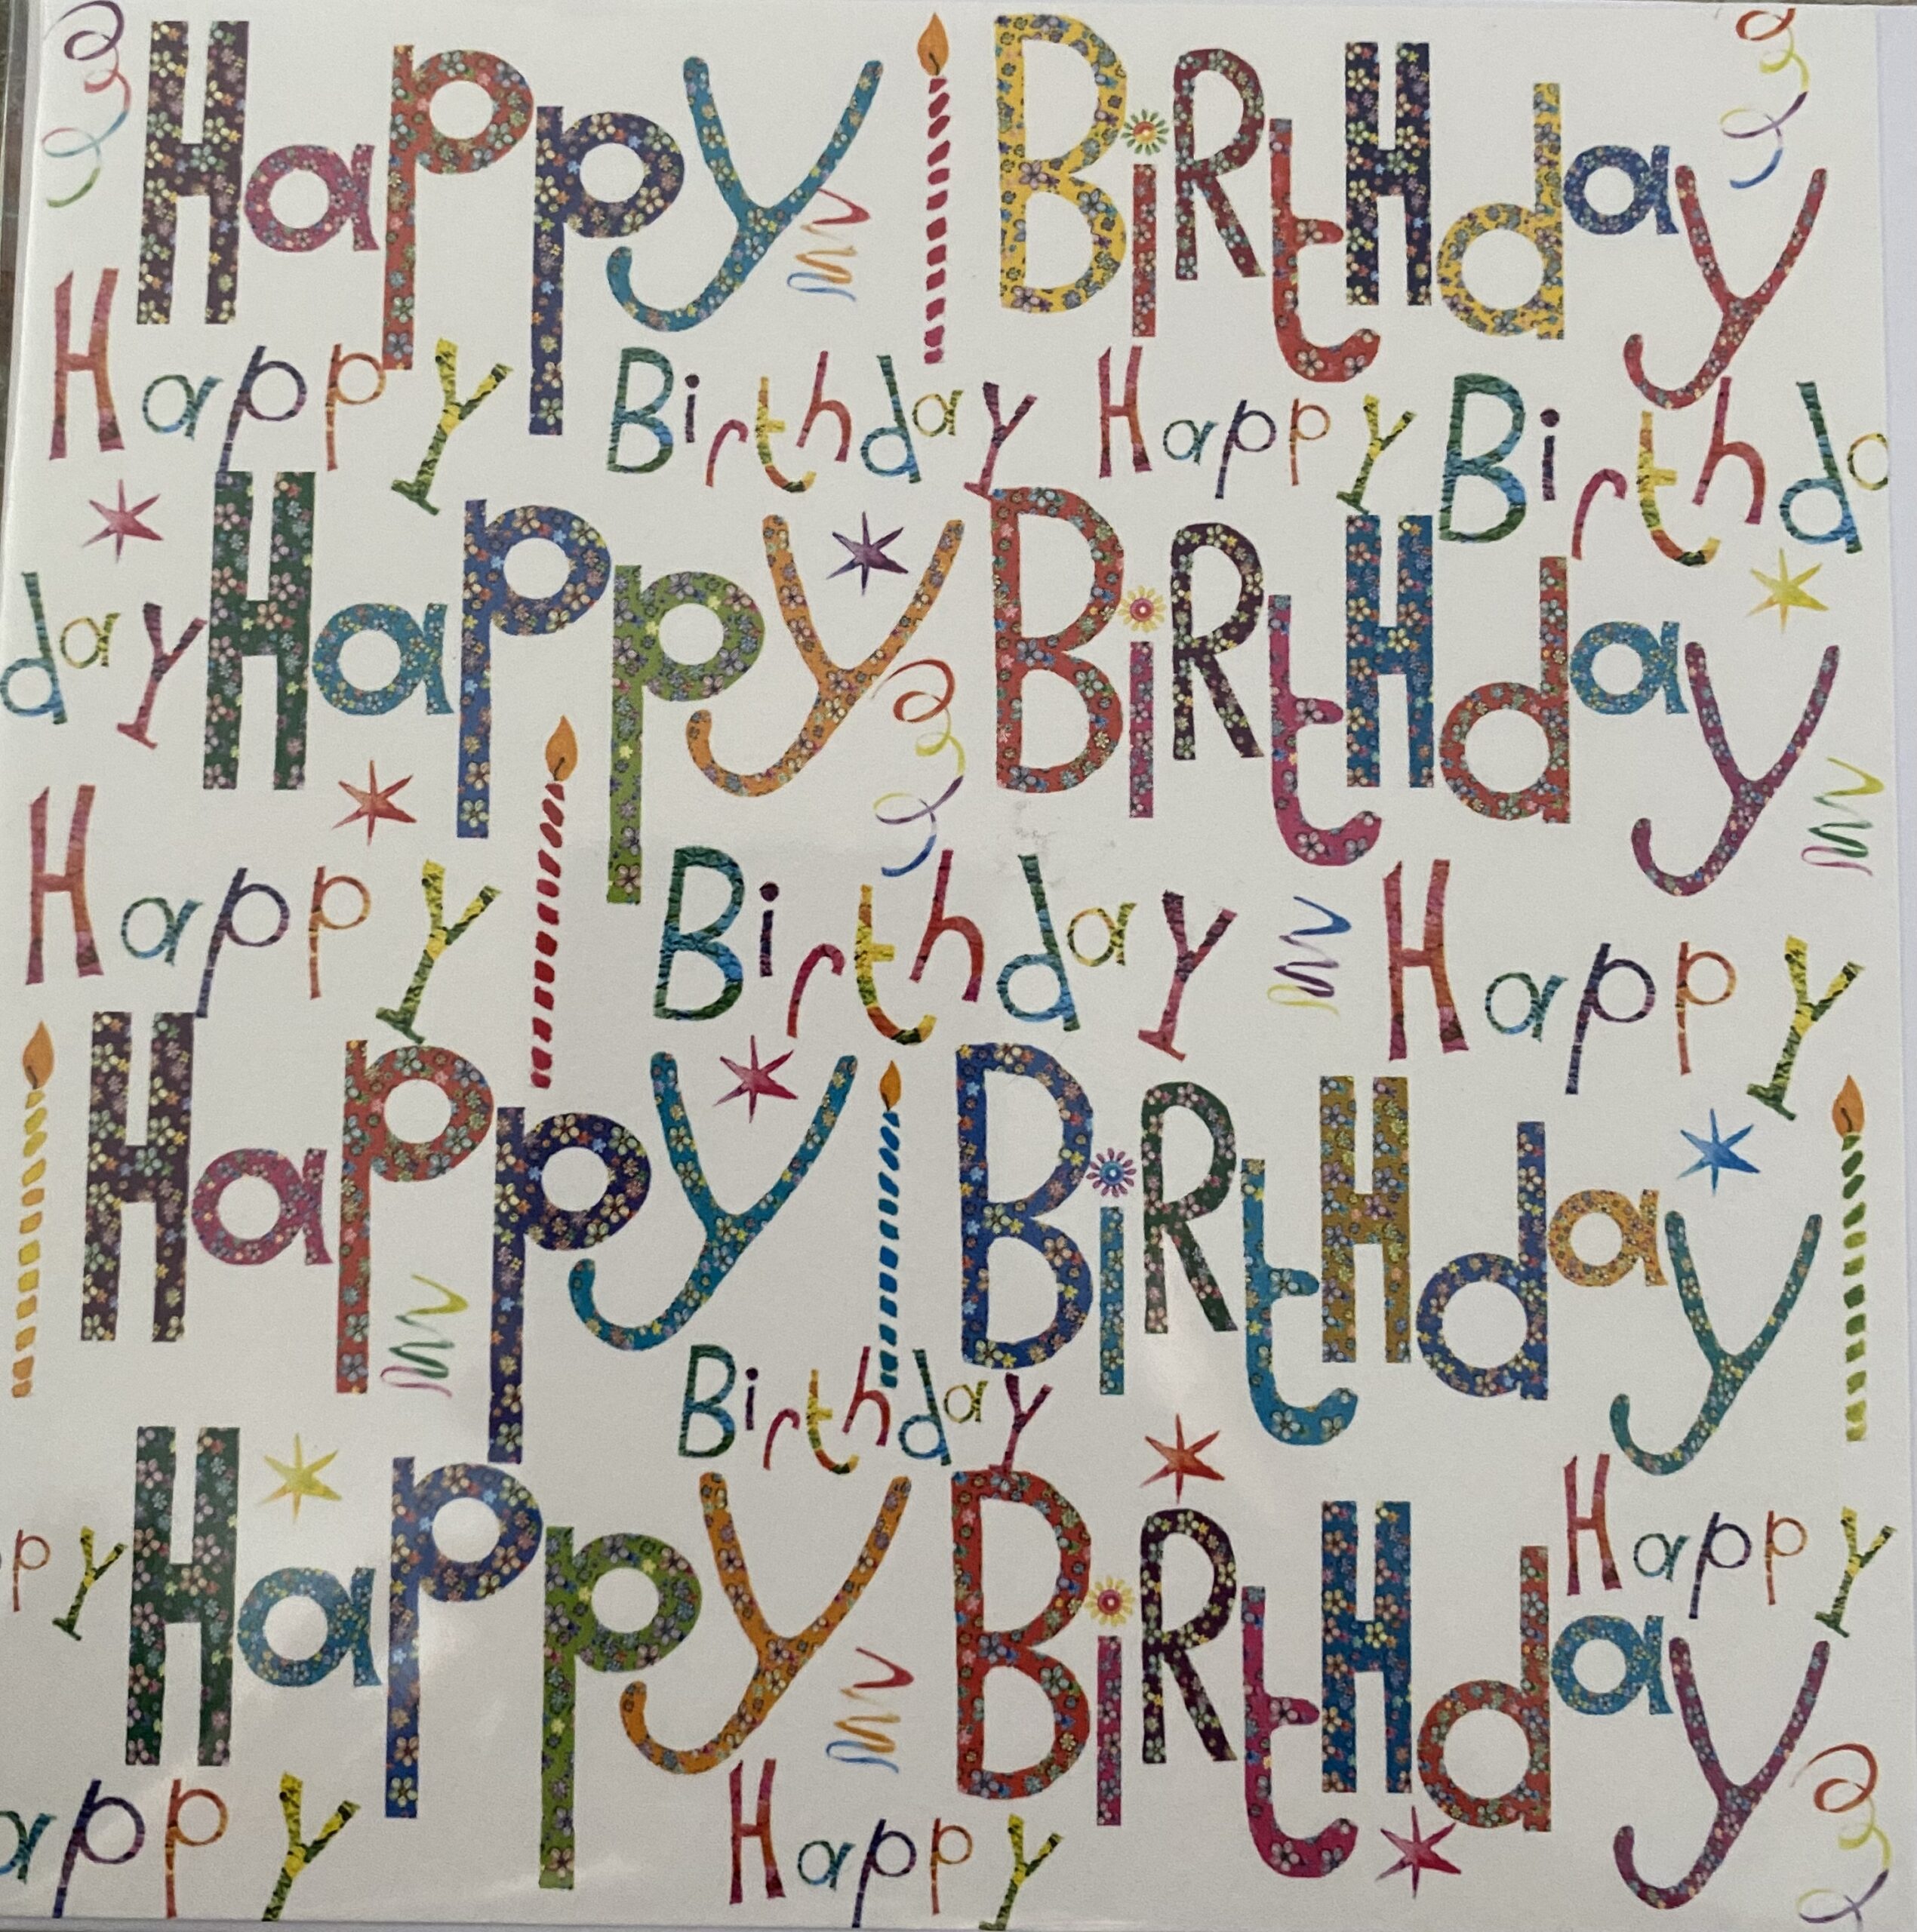 Happy BiRtHday
Happy Birthday Happy Birthda
day Happy BiRtHday
Happy Birthday Happy
Happy BiRtHday
Birthday
ppy Happy BiRtHday Happy
appy Happy